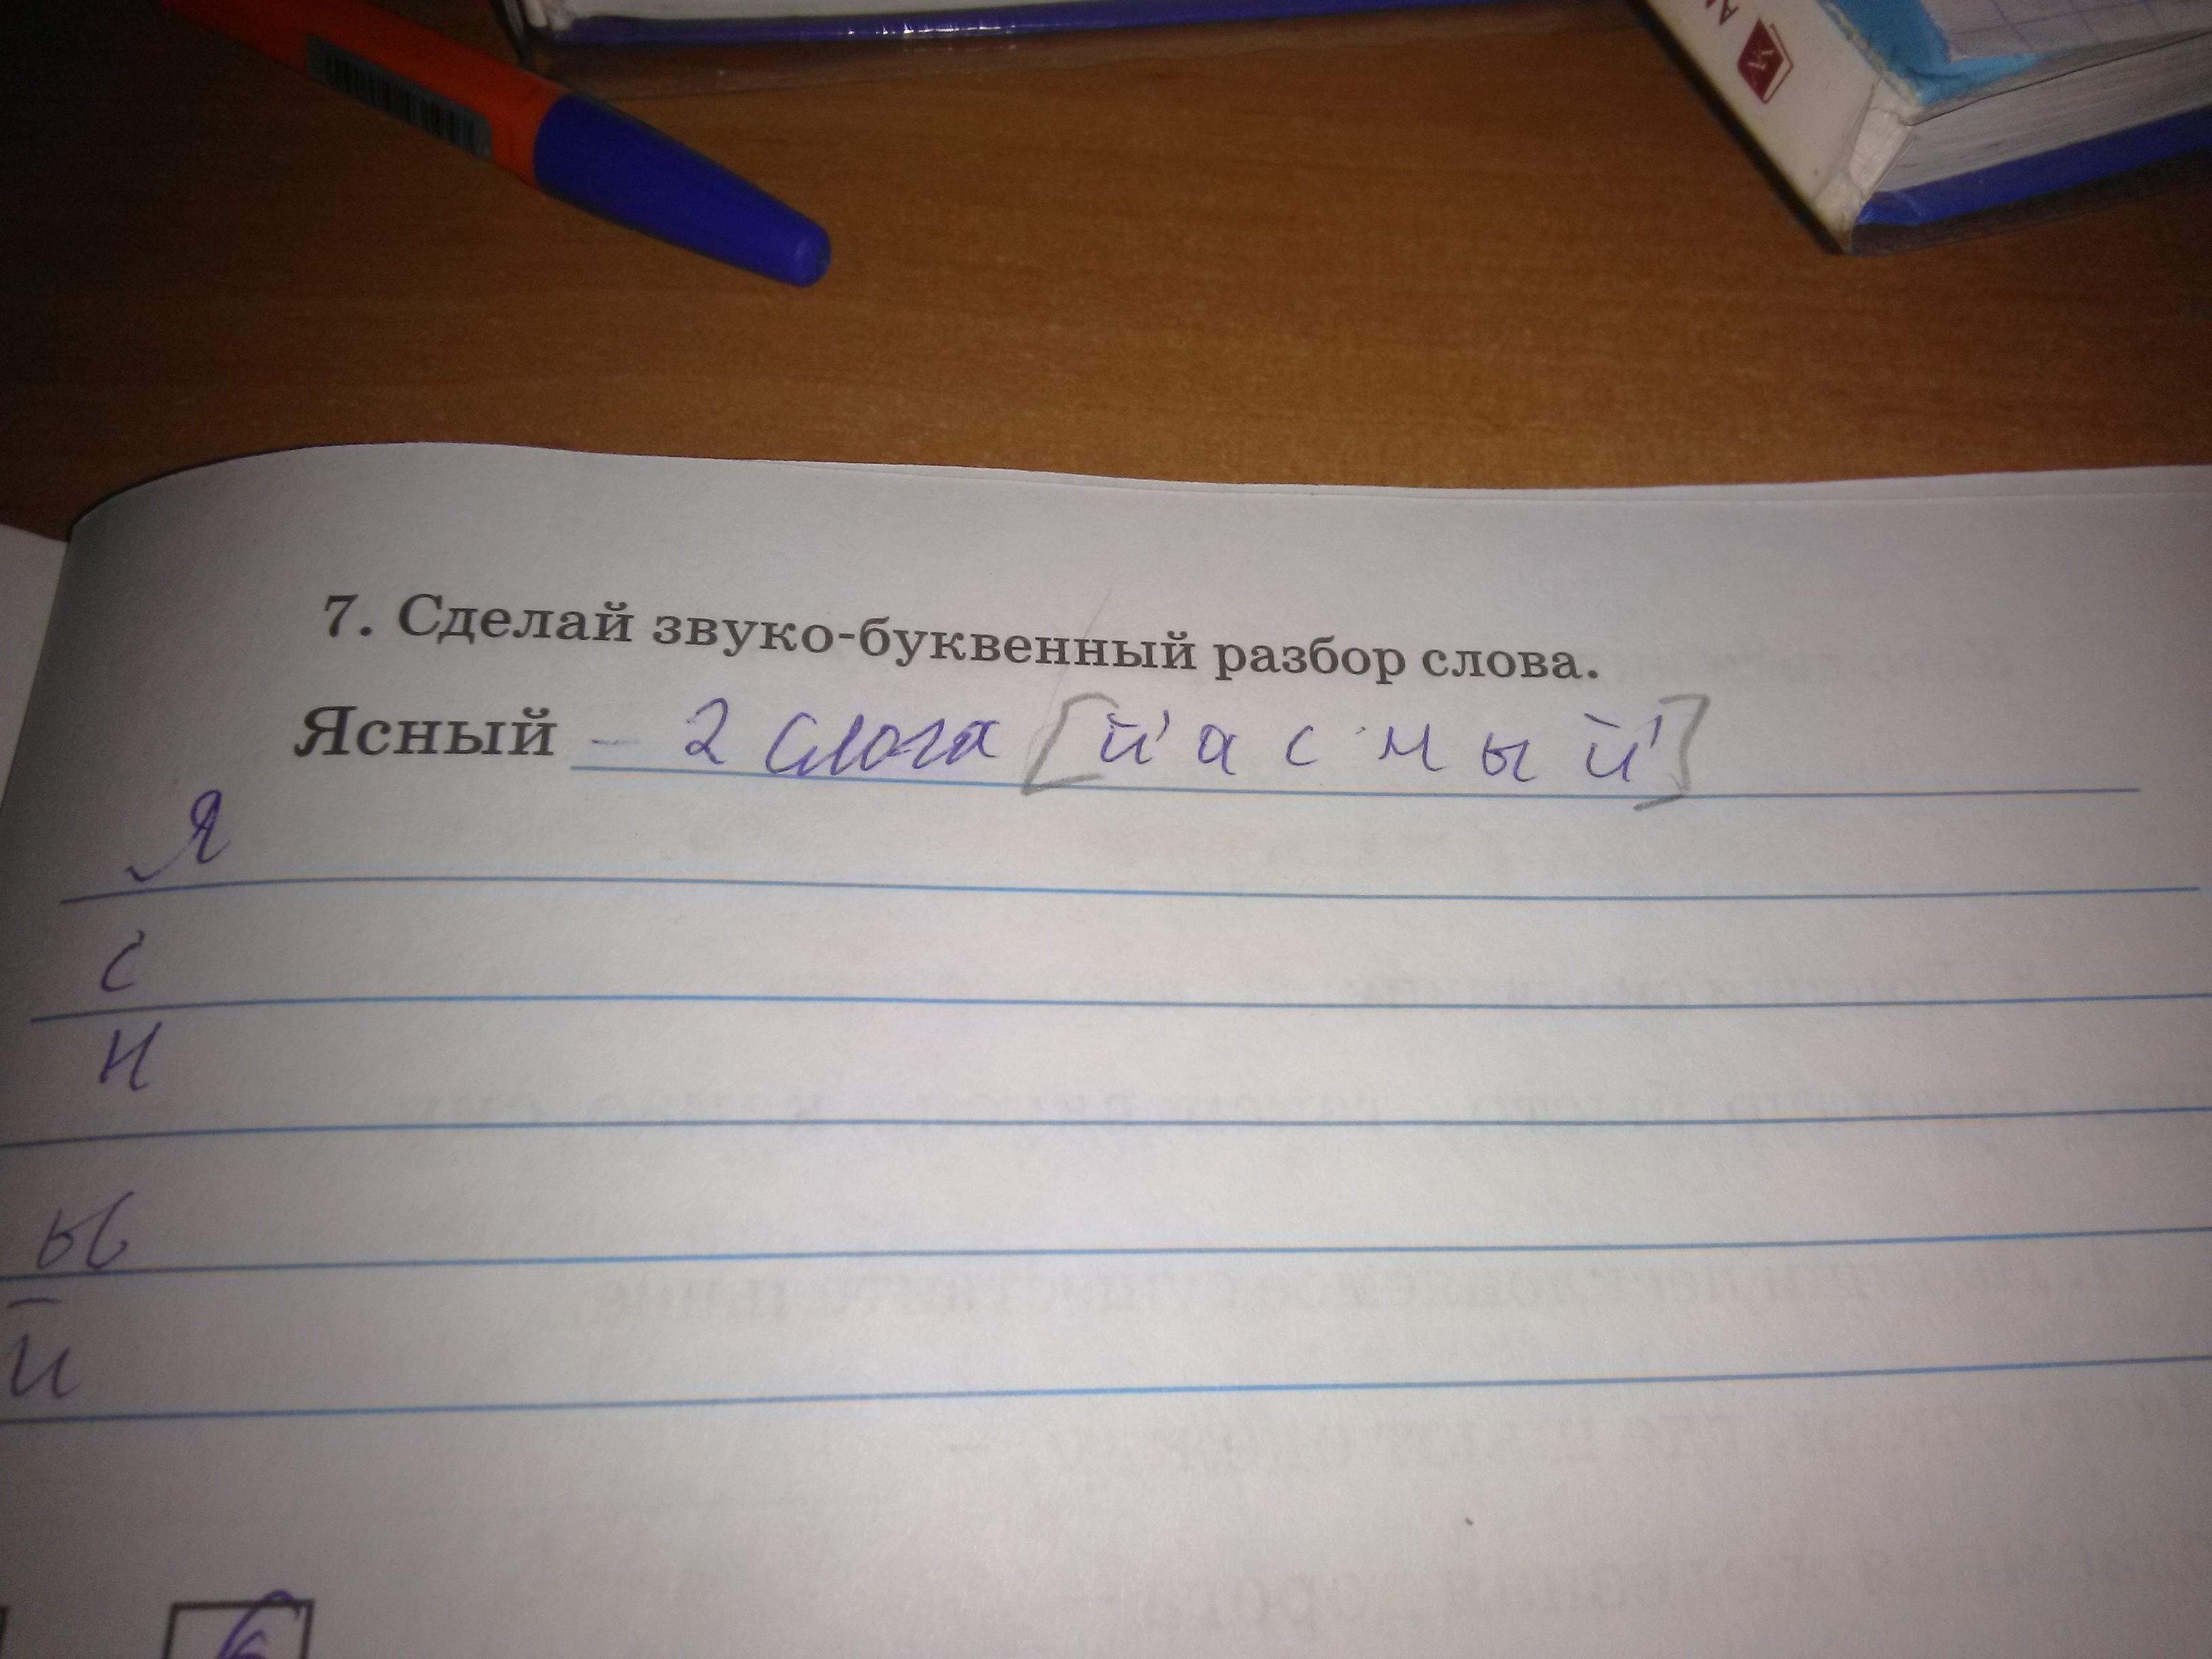 7. Сделай звуко-буквенный разбор слова.
Ясный – 2 слога [й' а с н ы й']
Я
с
н
ы
й